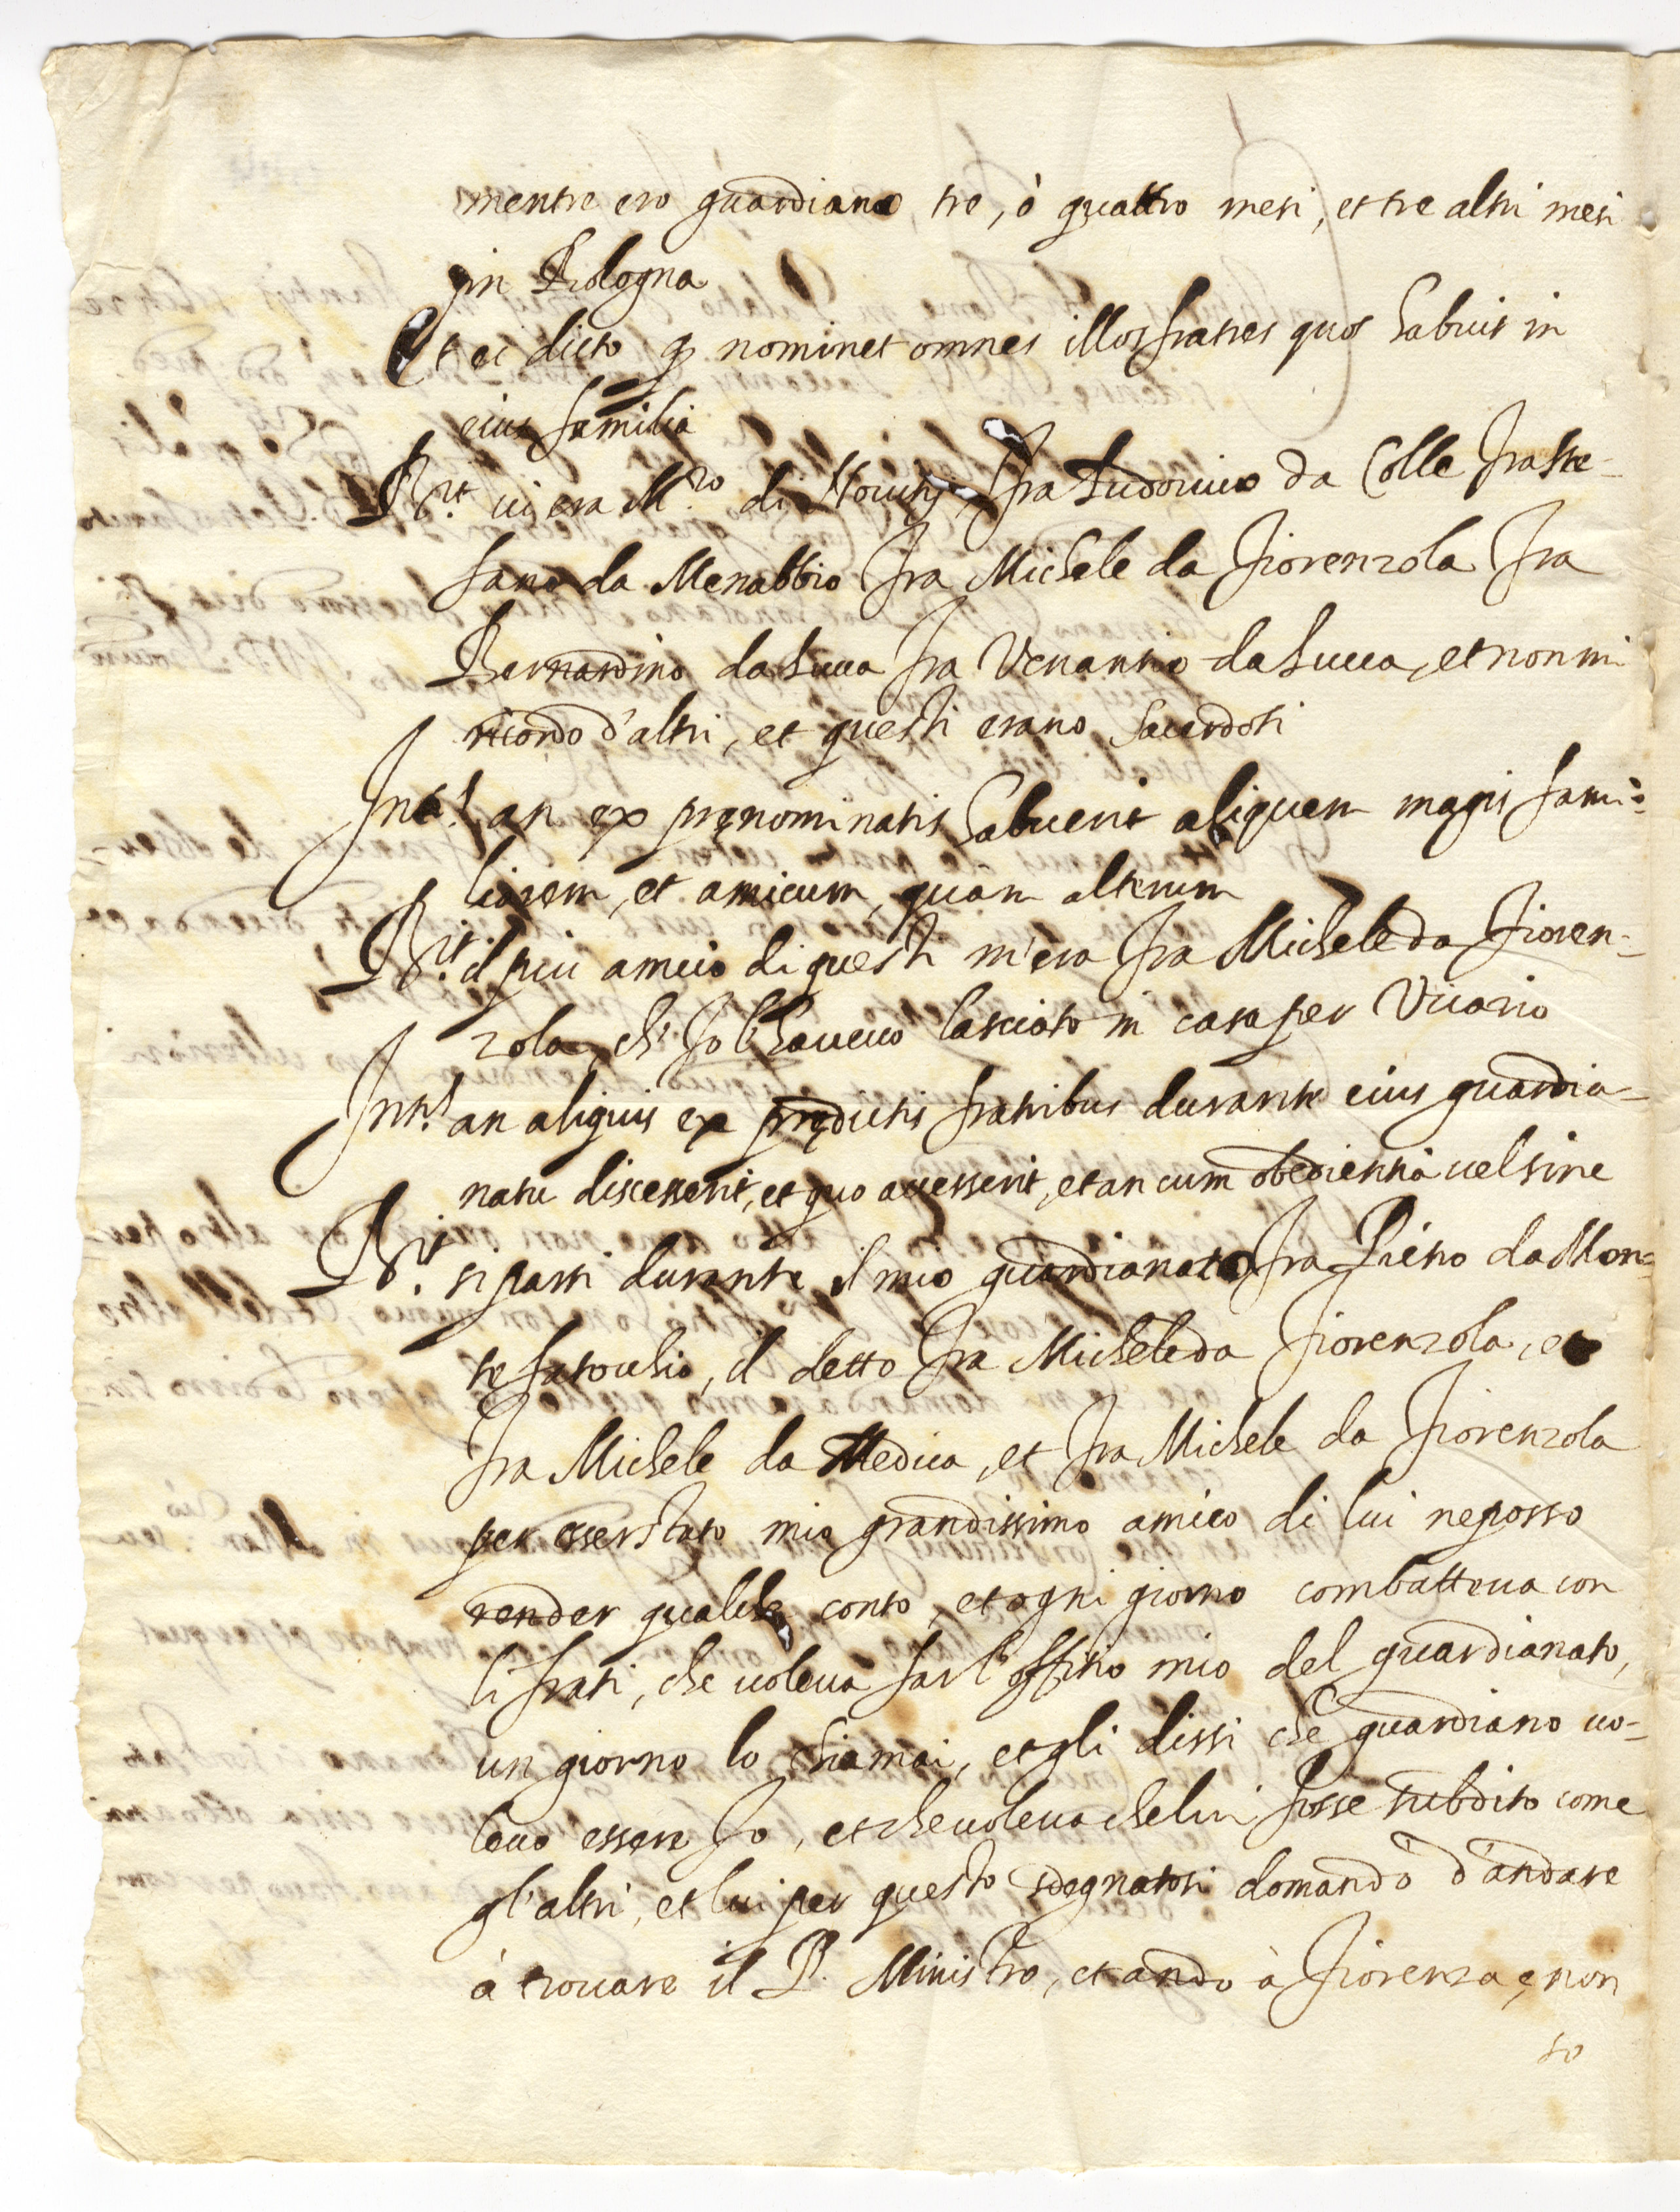 mentre ero guardiano, tre, ò quattro mesi, et tre altri mesi
in Bologna
Et ei dicto q nominet omnes illos fratres quos habuit in
eius familia
R.t ui era M.ro di Nouitij fra Ludouico da Colle fra Ste-
fano da Menabbio fra Michele da Fiorenzola fra
Bernardino da Lucca fra Venantio da Lucca, et non mi
ricordo d'altri, et questi erano sacerdoti
Int.s an ex prenominatis habuerit aliquem magis fami-
liarem, et amicum, quàm alterum
R.t il piu amico di questi m'era fra Michele da Fioren-
zola, ch' Io l'haueuo lasciato in casa per Vicario
Int.s an aliquis ex predictis fratribus durante eius guardia-
natu discesserit, et quo accesserit, et an cum obedientia uel sine
R.t si partì durante il mio guardianato fra Pietro da Mon-
te, il detto fra Michele da Fiorenzola, et
fra Michele da Medica, et fra Michele da Fiorenzola
per esser stato mio grandissimo amico di lui ne posso
render qualche conto, et ogni giorno combatteua con
li frati, che uoleua far l'offitio mio del guardianato,
un giorno lo chiamai, et gli dissi che guardiano uo-
leuo essere Io, et che uoleua che lui fosse subdito come
gl'altri, et lui per questo sdegnatosi domandò d'andare
à trouare il P. Ministro, et andò à Fiorenza, e non
so